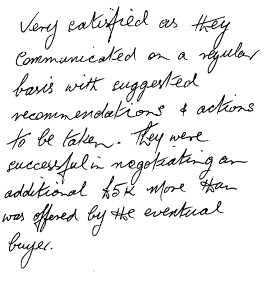 Very satisfied as they
communicated on a regular
basis with suggested
recommendations & actions
to be taken. They were
successful in negotiating an
additional £5K more than
was offered by the eventual
buyer.